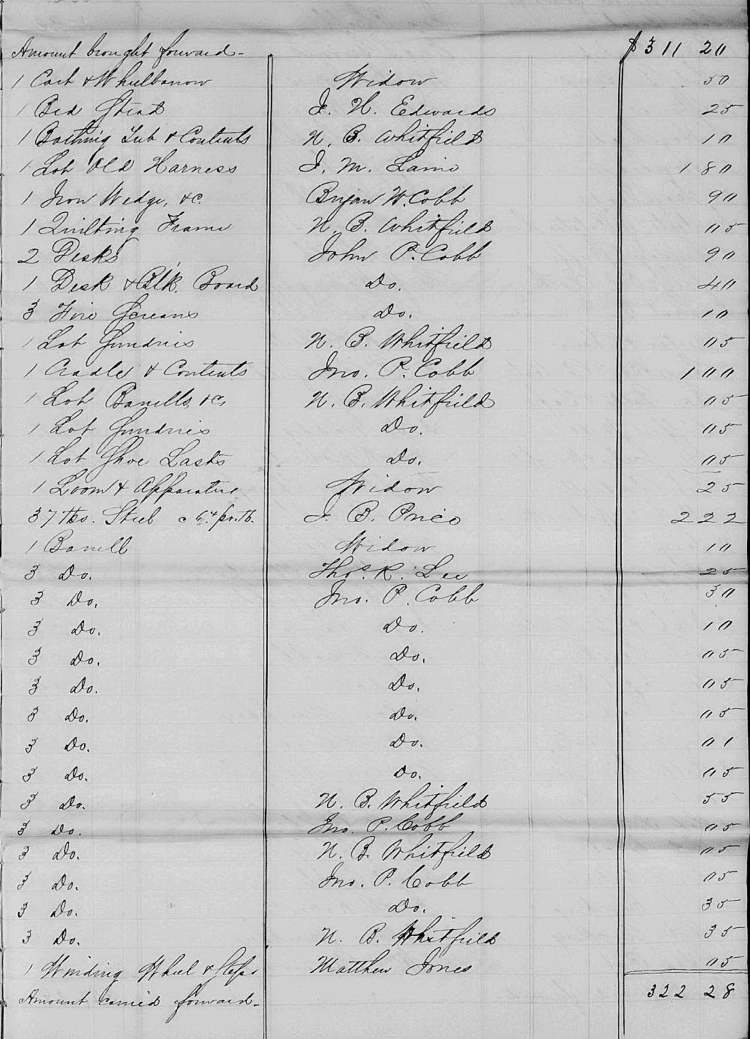 Amount brought forward - $311 20
1 Cart & Whulbarrow Widow 50
1 Bed Stead J. H. Edwards 25
1 Bathing Tub & Contents N. B. Whitfield 10
1 Lot Old Harness J. M. Laine 1 80
1 Iron Wedge, &c. Bryan W. Cobb 90
1 Quilting Frame N. B. Whitfield 05
2 Desks John P. Cobb 90
1 Desk & Blk. Board Do. 40
3 Fire Screans Do. 10
1 Lot Sundries N. B. Whitfield 05
1 Cradle & Contents Jno. P. Cobb 1 00
1 Lot Barrells, &c, N. B. Whitfield 05
1 Lot Sundries Do. 05
1 Lot Shoe Lasts Do. 05
1 Loom & Apparatus Widow 25
37 lbs. Steel 6¢ pr. lb. J. B. Price 2 22
1 Barrell Widow 10
3 Do. Thos. R. Lee 25
3 Do. Jno. P. Cobb 30
3 Do. Do. 10
3 Do. Do. 05
3 Do. Do. 05
3 Do. Do. 05
3 Do. Do. 01
3 Do. Do. 05
3 Do. N. B. Whitfield 55
3 Do. Jno. P. Cobb 05
3 Do. N. B. Whitfield 05
3 Do. Jno. P. Cobb 05
3 Do. Do. 35
3 Do. N. B. Whitfield 35
1 Winding Wheel & Matthew Jones 05
Amount carried forward - 322 28